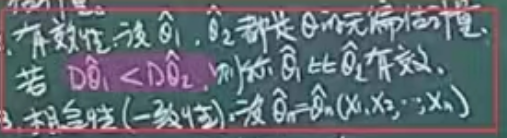 估计量。
2. 有效性:设 θ̂₁, θ̂₂ 都是 θ 的无偏估计量,
若 Dθ̂₁ < Dθ̂₂, 则称 θ̂₁ 比 θ̂₂ 有效,
3. 相合性(一致性):设 θ̂ₙ = θ̂ₙ(X₁, X₂, …, Xₙ)